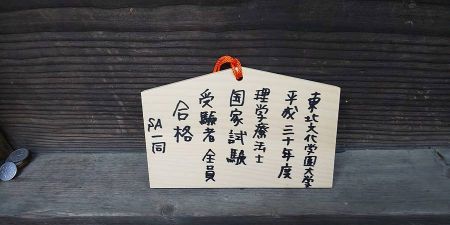 東北文化学園大学
平成三十年度
理学療法士
国家試験
受験者 全員
合格
SA一同